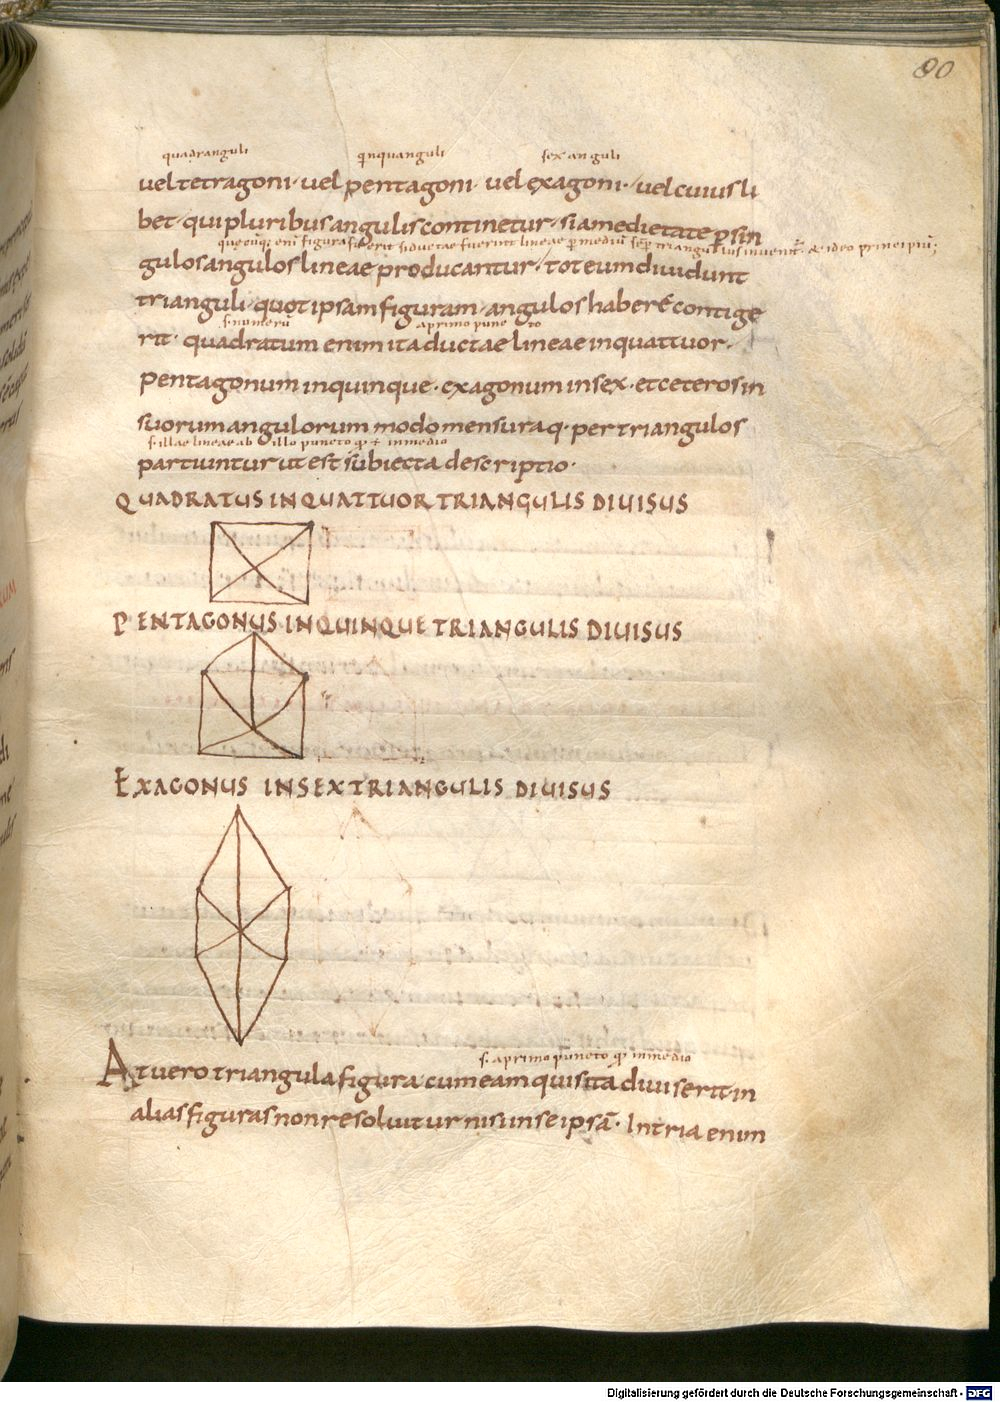 80
quadranguli qinquanguli sexanguli
uel tetragoni · uel pentagoni · uel exagoni · uel cuius li
bet · qui pluribus angulis continetur · si a medietate p sin
figura fuerit si ductae fuerint lineae p mediū triangulus & ideo principiū;
gulos angulos lineae producantur · tot eum diuidunt
trianguli · quot ipsam figuram · angulos habere contige
s. numerū a primo puncto
rit · quadratum enim ita ductae lineae in quattuor ·
pentagonum in quinque · exagonum in sex · et ceteros in
suorum angulorum modo mensuraq· per triangulos
s. illae lineae ab illo puncto q ÷ in medio
partiuntur ut est subiecta descriptio ·
QUADRATUS IN QUATTUOR TRIANGULIS DIUISUS
PENTAGONUS IN QUINQUE TRIANGULIS DIUISUS
EXAGONUS IN SEX TRIANGULIS DIUISUS
s. a primo puncto q in medio
At uero triangula figura cum eam quis ita diuiserit in
alias figuras non resoluitur nisi in se ipsā · In tria enim
Digitalisierung gefördert durch die Deutsche Forschungsgemeinschaft - DFG